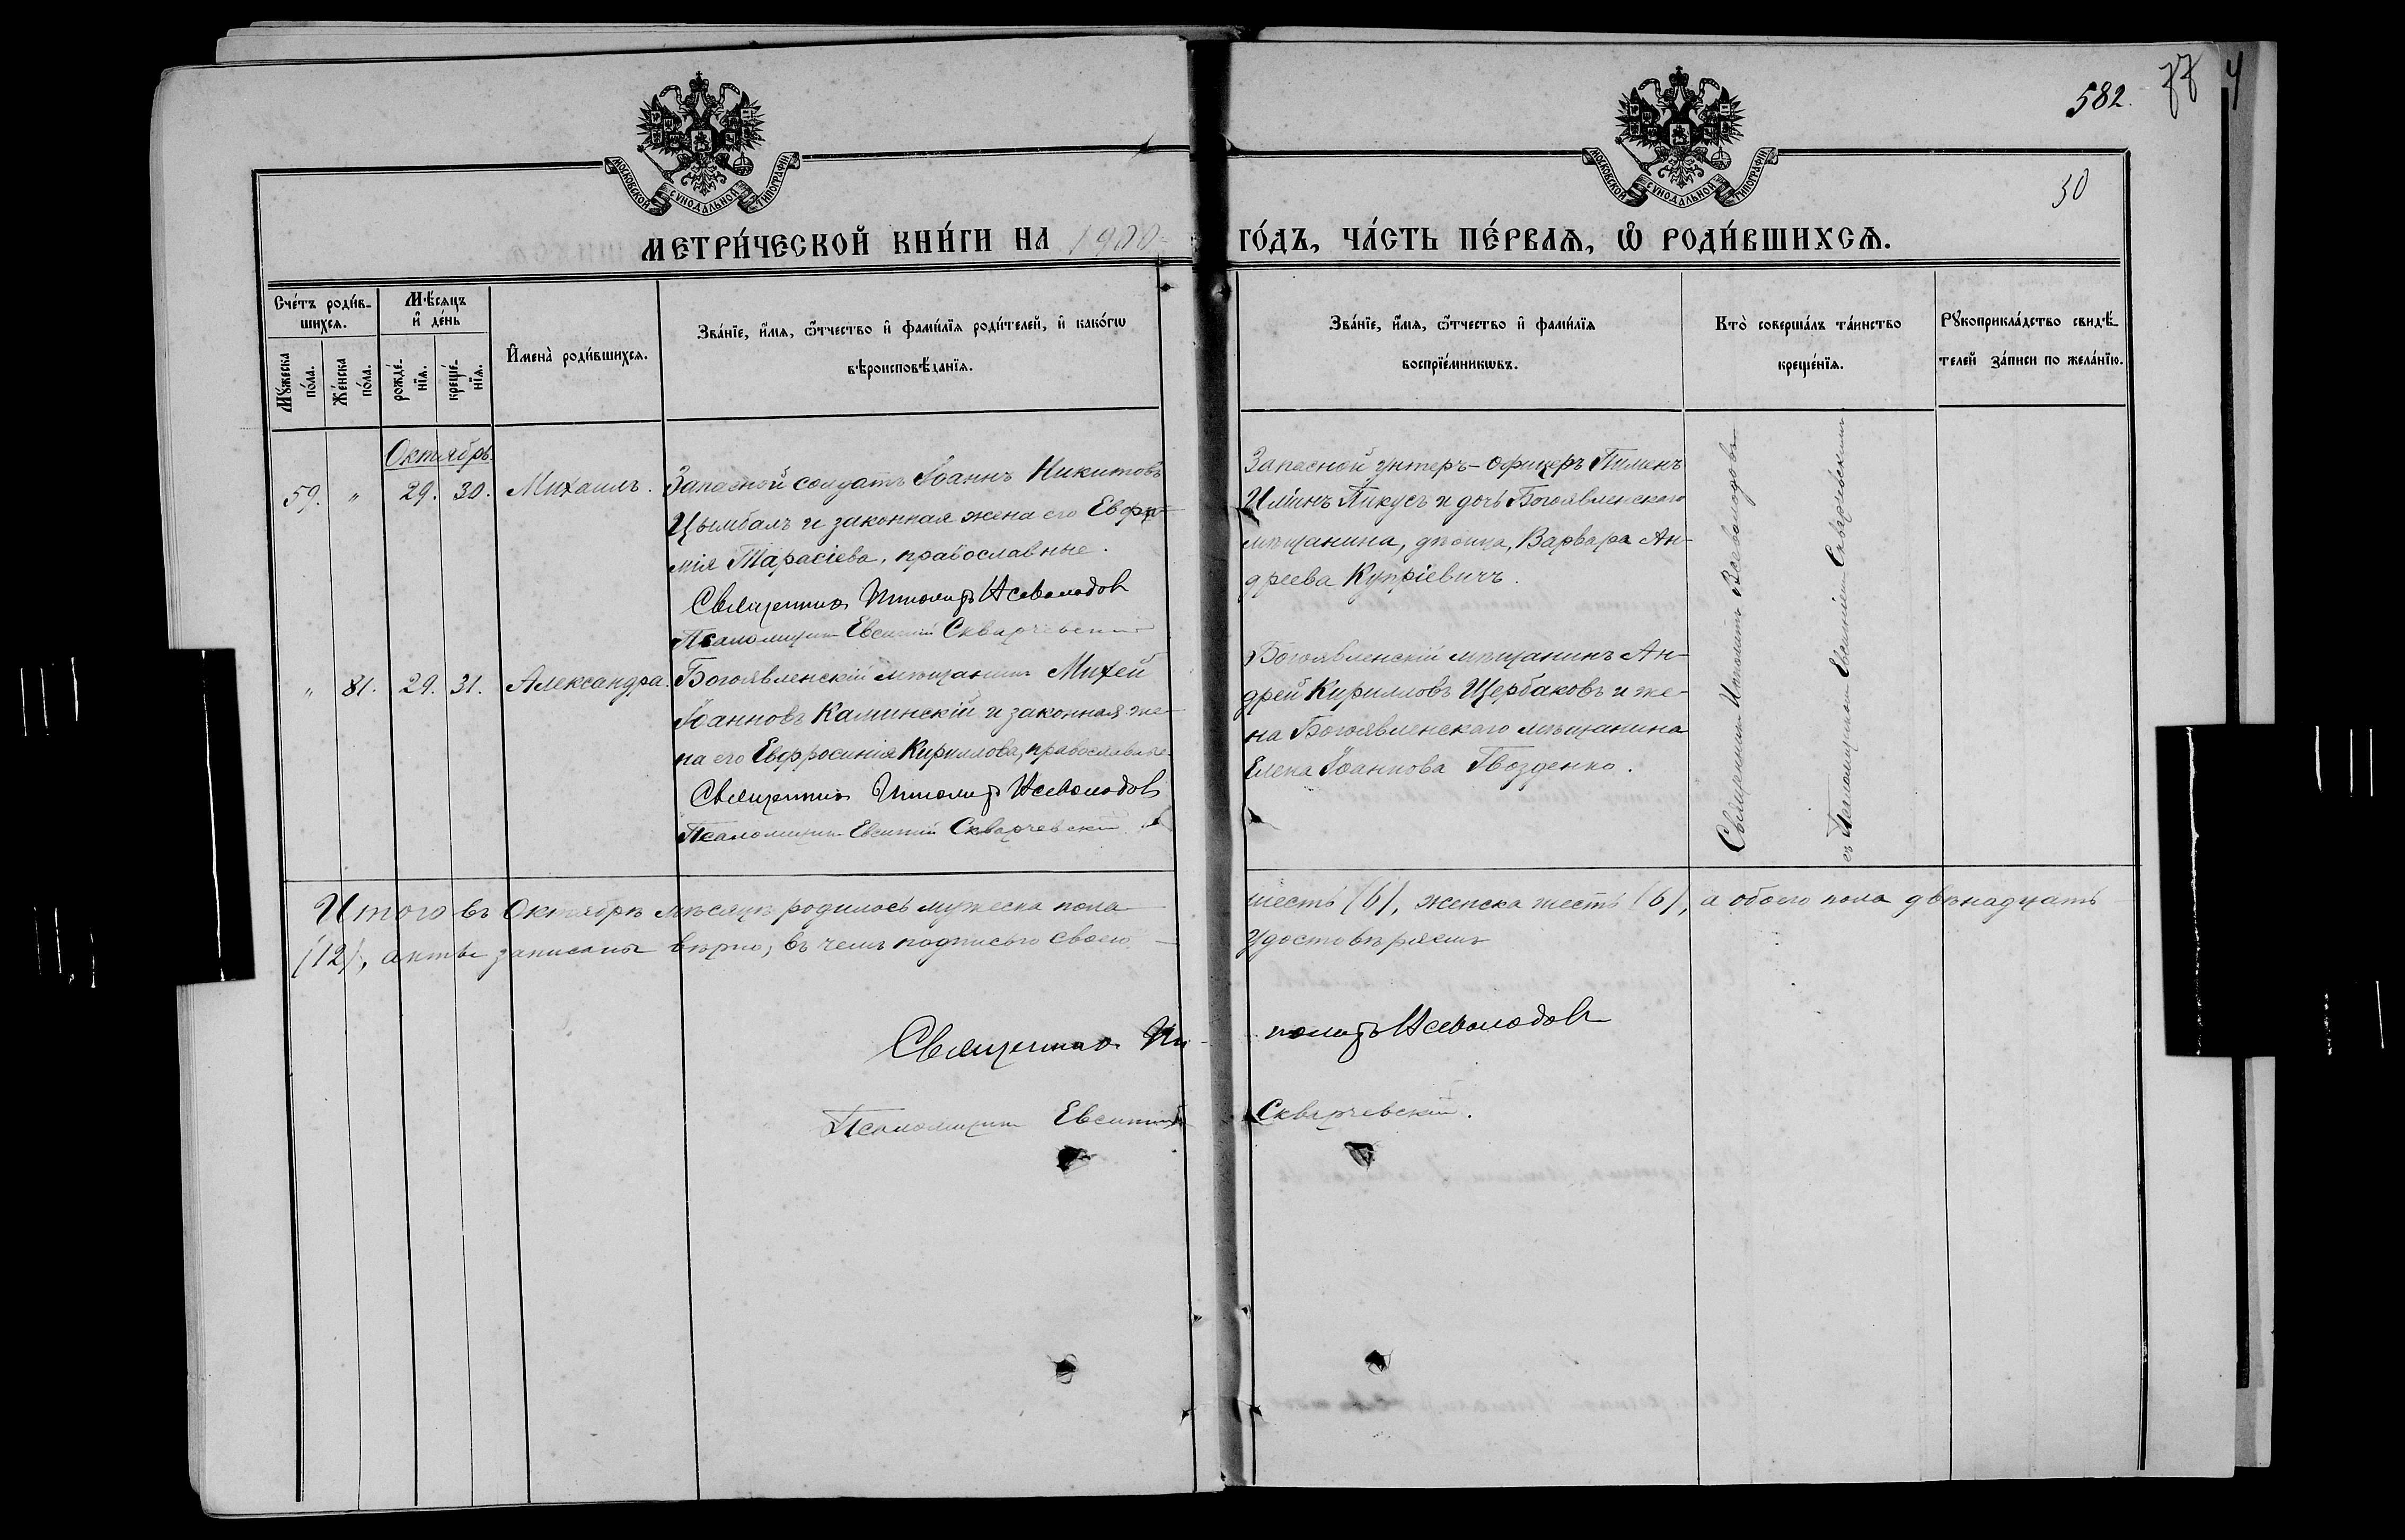 582. 77 4
30
МОСКОВСКОЙ СѴНОДАЛЬНОЙ ТИПОГРАФІИ
МОСКОВСКОЙ СѴНОДАЛЬНОЙ ТИПОГРАФІИ
МЕТРИ́ЧЕСКОЙ КНИ́ГИ НА 1900 ГО́ДЪ, ЧА́СТЬ ПЕ́РВАѦ, Ѡ҆ РОДИ́ВШИХСѦ.
Сче́тъ роди́в-
шихсѧ.
Мꙋ́жеска
по́ла.
Же́нска
по́ла.
Мѣ́сѧцъ
и҆ де́нь
рожде́-
нїѧ.
креще́-
нїѧ.
И҆мена̀ роди́вшихсѧ.
Зва́нїе, и҆́мѧ, ѻ҆́тчество и҆ фами́лїѧ роди́телей, и҆ како́гѡ
вѣроисповѣ́данїѧ.
Зва́нїе, и҆́мѧ, ѻ҆́тчество и҆ фами́лїѧ
воспрїе́мникѡвъ.
Кто̀ соверша́лъ та́инство
креще́нїѧ.
Рꙋкоприкла́дство свидѣ́-
телей за́писи по жела́нїю.
Октябрь.
59. " 29. 30. Михаилъ.
Запасной солдатъ Іоаннъ Никитовъ
Цымбалъ и законная жена его Евфи-
мія Тарасіева, православные.
Священникъ Ипполитъ Всеволодовъ
Псаломщикъ Евсигній Скварчевскій
Запасной унтеръ-офицеръ Пименъ
Иліинъ Пикусъ и дочь Богоявленскаго
мѣщанина, дѣвица, Варвара Ан-
дреева Купріевичъ.
" 81. 29. 31. Александра.
Богоявленскій мѣщанинъ Михей
Іоанновъ Каминскій и законная же-
на его Евфросинія Кириллова, православные.
Священникъ Ипполитъ Всеволодовъ
Псаломщикъ Евсигній Скварчевскій
Богоявленскій мѣщанинъ Ан-
дрей Кирилловъ Щербаковъ и же-
на Богоявленскаго мѣщанина
Елена Іоаннова Гвозденко.
Священникъ Ипполитъ Всеволодовъ
съ Псаломщикомъ Евсигніемъ Скварчевскимъ
Итого въ Октябрѣ мѣсяцѣ родилось мужеска пола шесть (6), женска шесть (6), а обоего пола двѣнадцать
(12), акты записаны вѣрно, въ чемъ подписью своею удостовѣряемъ
Священникъ Ипполитъ Всеволодовъ
Псаломщикъ Евсигній Скварчевскій.